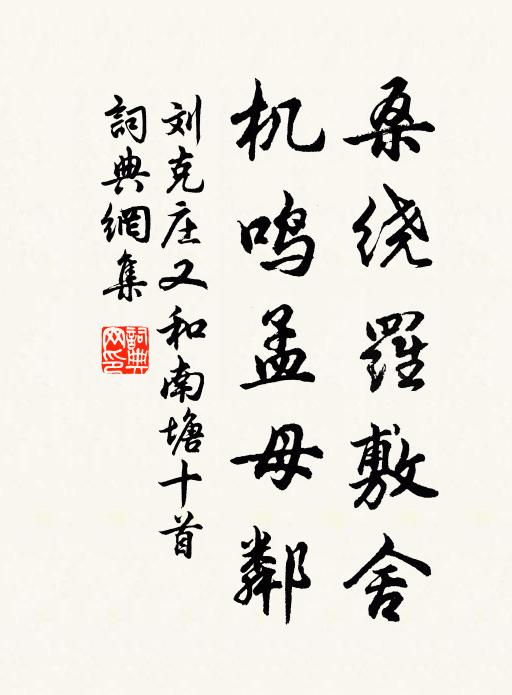 桑绕羅敷舍
机鸣孟母鄰
刘克庄又和南塘十首
詞典網集
詞典网印